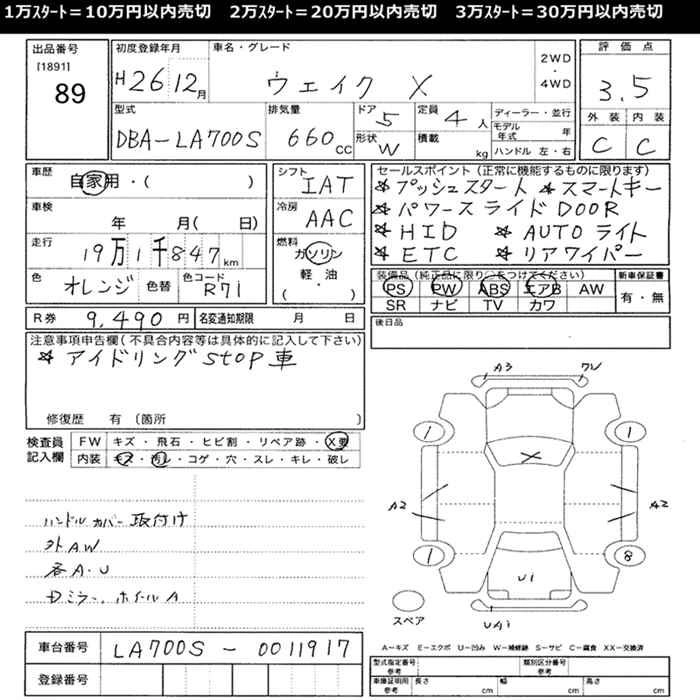 1万ｽﾀｰﾄ＝10万円以内売切　2万ｽﾀｰﾄ＝20万円以内売切　3万ｽﾀｰﾄ＝30万円以内売切
出品番号
[1891]
89
初度登録年月
H26 12月
車名・グレード
ウェイク X
2WD
・
4WD
評価点
3.5
外装 内装
C C
型式
DBA-LA700S
排気量
660cc
ドア
5
形状
W
定員
4人
積載
kg
ディーラー・並行
モデル年式 年
ハンドル 左・右
車歴
自家用・( )
車検
年 月( 日)
走行
19万1千847km
色
オレンジ
色替
色コード
R71
シフト
IAT
冷房
AAC
燃料
ガソリン
軽・油
( ・ )
セールスポイント (正常に機能するものに限ります)
☆プッシュスタート ☆スマートキー
☆パワースライドDOOR
☆HID ☆AUTOライト
☆ETC ☆リアワイパー
装備品(純正品に限り○をつけてください)
PS PW ABS エアB AW
SR ナビ TV カワ
新車保証書
有・無
後日品
R券 9,490円 名変通知期限 月 日
注意事項申告欄(不具合内容等は具体的に記入して下さい)
☆アイドリングStop車
修復歴 有 (箇所 )
検査員
記入欄
FW キズ・飛石・ヒビ割・リペア跡・X要
内装 キズ・汚レ・コゲ・穴・スレ・キレ・破レ
ハンドルカバー取付け
外AW
各A・U
Dミラー、ホイールA
車台番号 LA700S-0011917
登録番号
A3
1
1
A2
A2
1
8
U1
スペア
A-キズ E-エクボ U-凹み W-補修跡 S-サビ C-腐食 XX-交換済
型式指定番号
参考
類別区分番号
参考
車庫証明用
参考
長さ cm 幅 cm 高さ cm